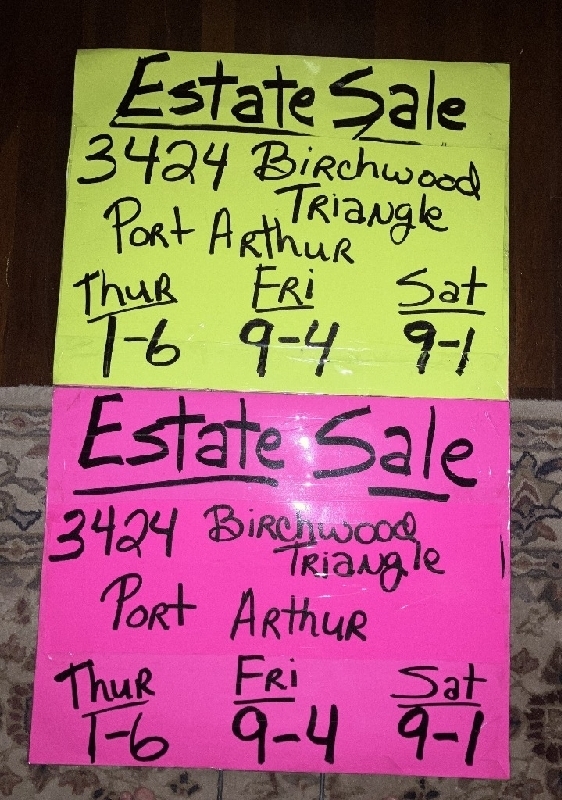 Estate Sale
3424 Birchwood
Triangle
Port Arthur
Thur Fri Sat
1-6 9-4 9-1
Estate Sale
3424 Birchwood
Triangle
Port Arthur
Thur Fri Sat
1-6 9-4 9-1